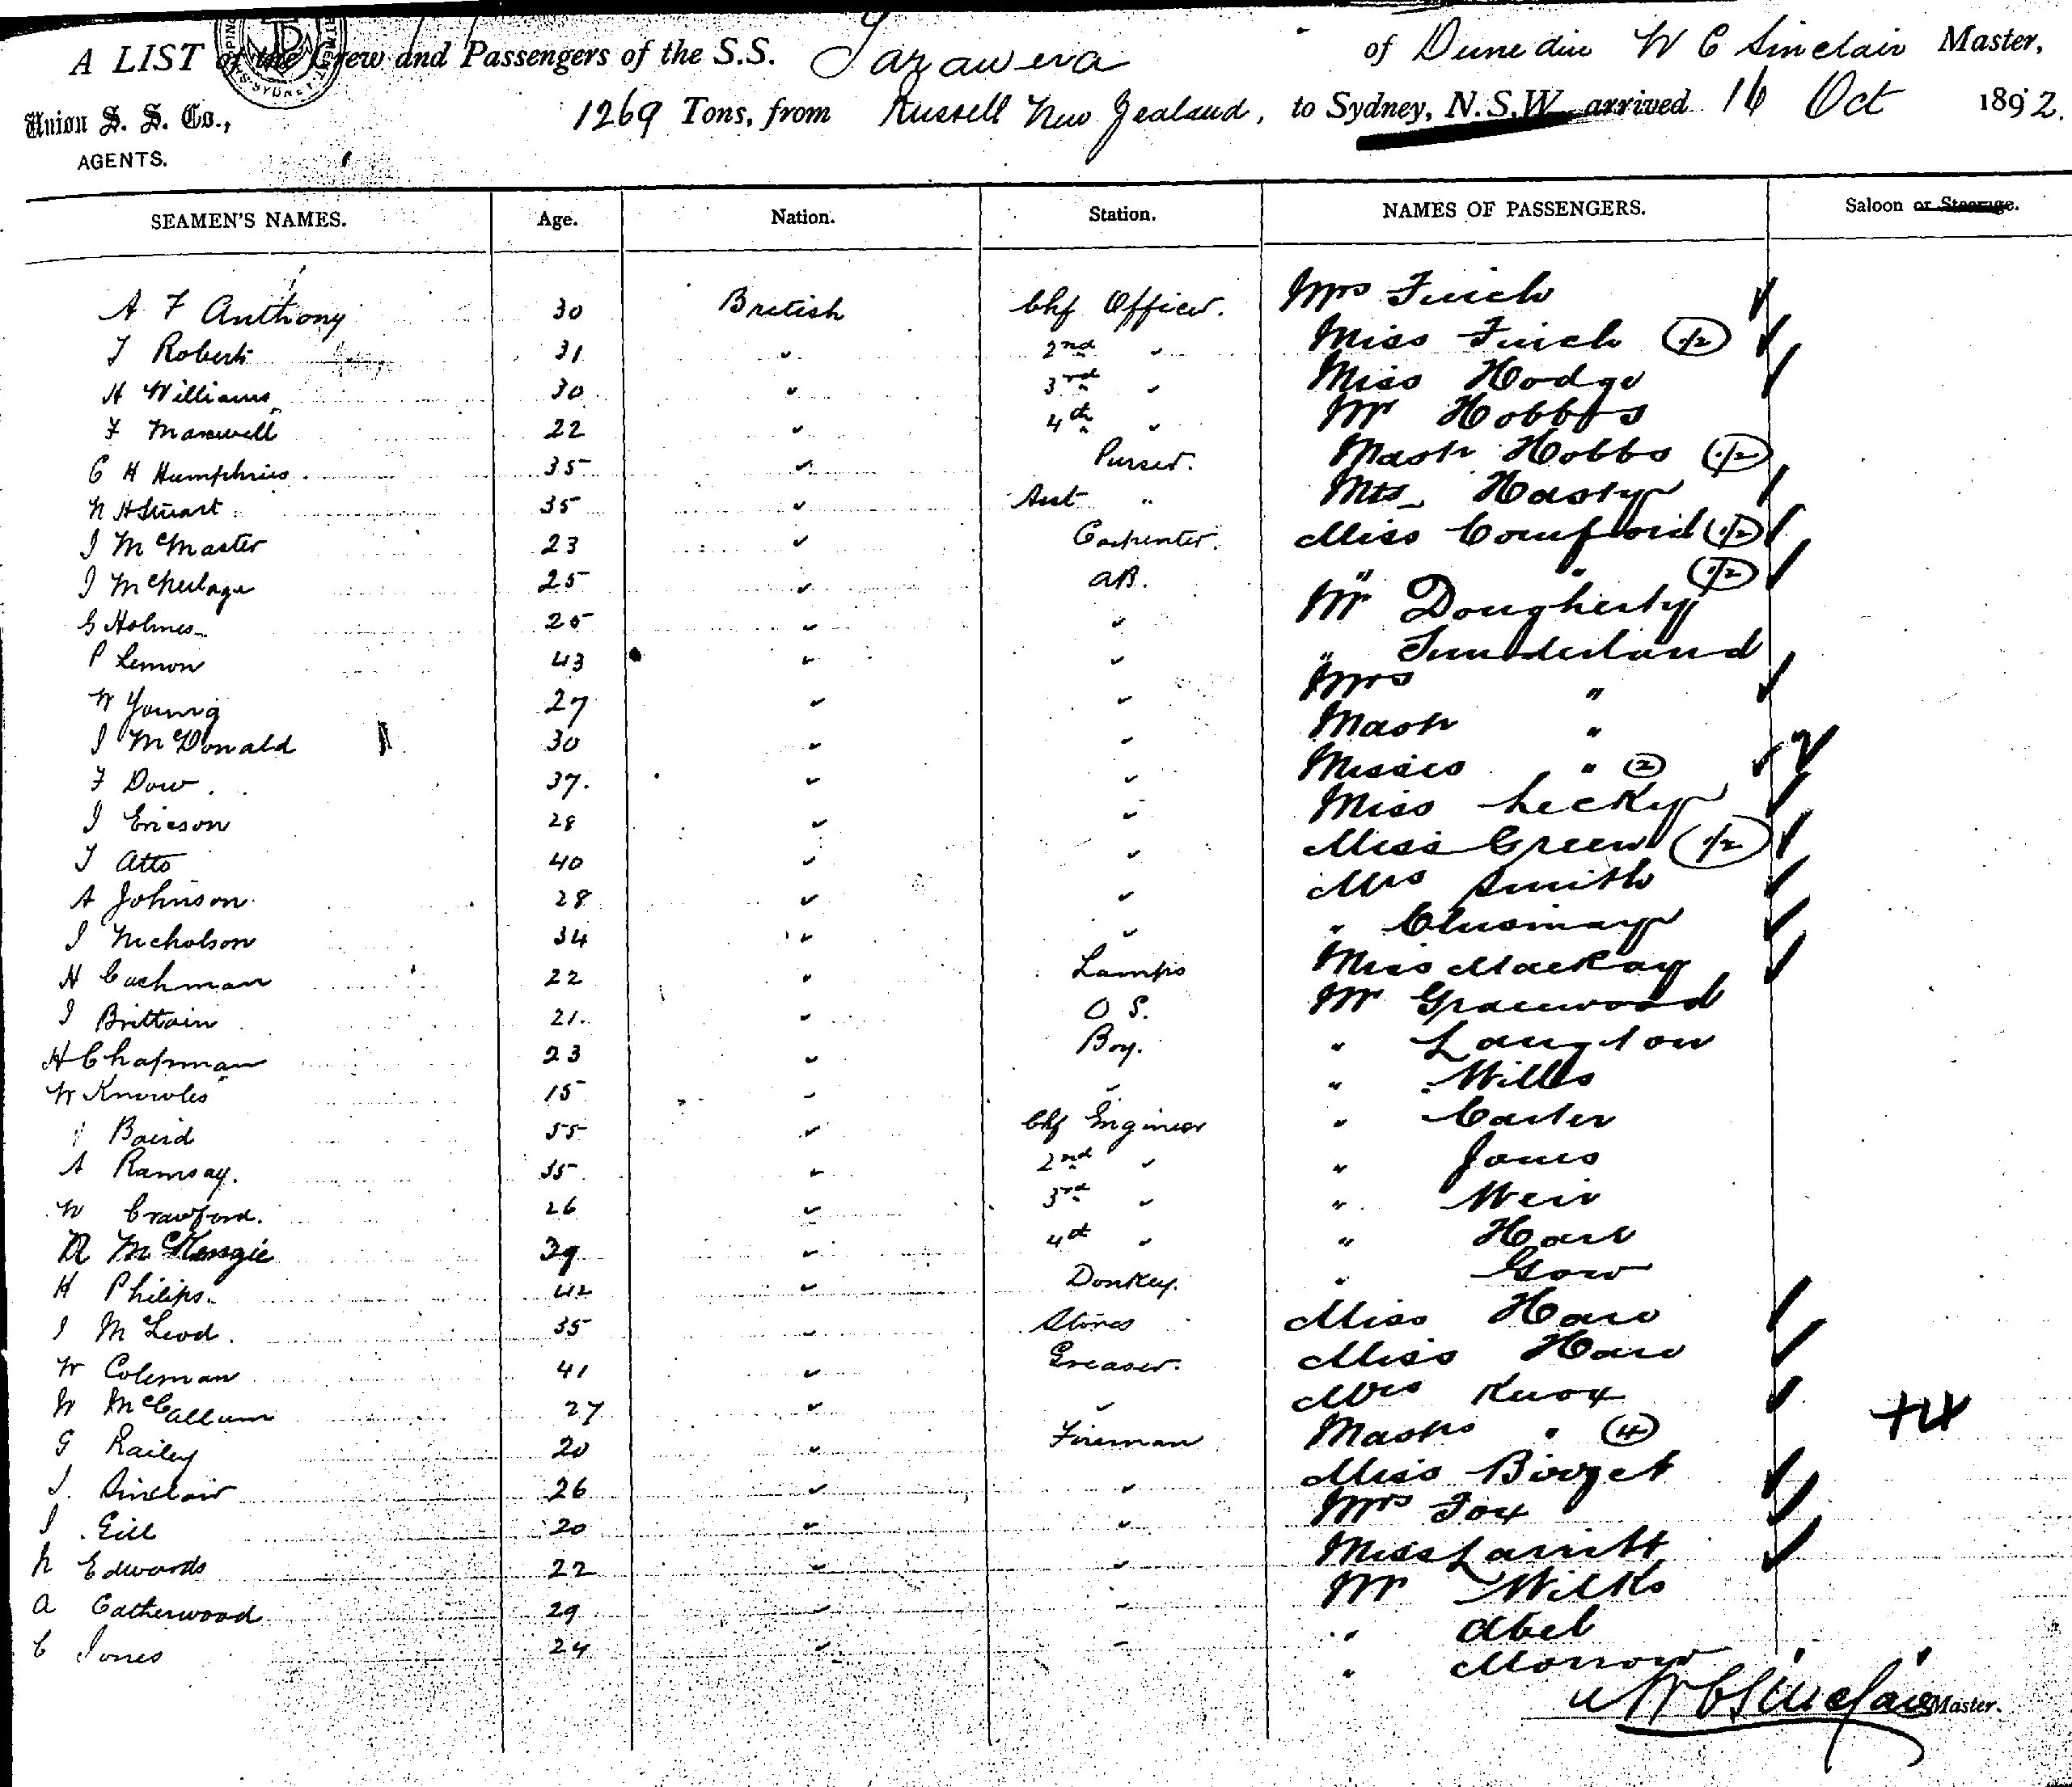 A LIST of the Crew and Passengers of the S.S. Tarawera of Dunedin W C Sinclair Master,
Union S. S. Co., 1269 Tons, from Russell New Zealand, to Sydney, N.S.W. arrived 16 Oct 1892.
AGENTS.
SEAMEN'S NAMES. Age. Nation. Station. NAMES OF PASSENGERS. Saloon or Steerage.
A F Anthony 30 British Chf Officer. Mrs Finch
T Roberts 31 " 2nd " Miss Finch (1/2)
H Williams 30 " 3rd " Miss Hodge
F Maxwell 22 " 4th " Mr Hobbs
C H Humphries 35 " Purser. Mastr Hobbs (1/2)
N H Stuart 35 " Asst " Mrs Hasty
J McMaster 23 " Carpenter. Miss (1/2)
J 25 " AB. " " (1/2)
G Holmes 25 " " Mr Dougherty
P Lemon 43 " " " Sunderland
W Young 27 " " Mrs "
J McDonald 30 " " Mastr "
F Dow 37. " " Misses " (2)
J Ericson 28 " " Miss Lecky
T Atto 40 " " Miss Green (1/2)
A Johnson 28 " " Mrs Smith
J Nicholson 34 " " "
H Cachman 22 " Lamps Miss Mackay
J Brittain 21. " O S. Mr Greenwood
H Chapman 23 " Boy. " Langton
W Knowles 15 " " " Wills
J Baird 55 " Chf Engineer " Carter
A Ramsay. 35 " 2nd " " Jones
W Crawford. 26 " 3rd " " Weir
A McKenzie 39 " 4th " " Hare
H Philips. 42 " Donkey. " Gow
J McLeod. 35 " Stores Miss Haw
W Coleman 41 " Greaser. Miss Haw
W McCallum 27 " " Mrs Knox
G Railey 20 " Fireman Mastrs " (4) +4
J. Sinclair 26 " " Miss Birget
J Gill 20 " " Mrs Fox
N Edwards 22 " " Miss Larritt
A Catherwood 29 " " Mr Wilks
C Jones 24 " " " Abel
" Morrow
W C Sinclair Master.